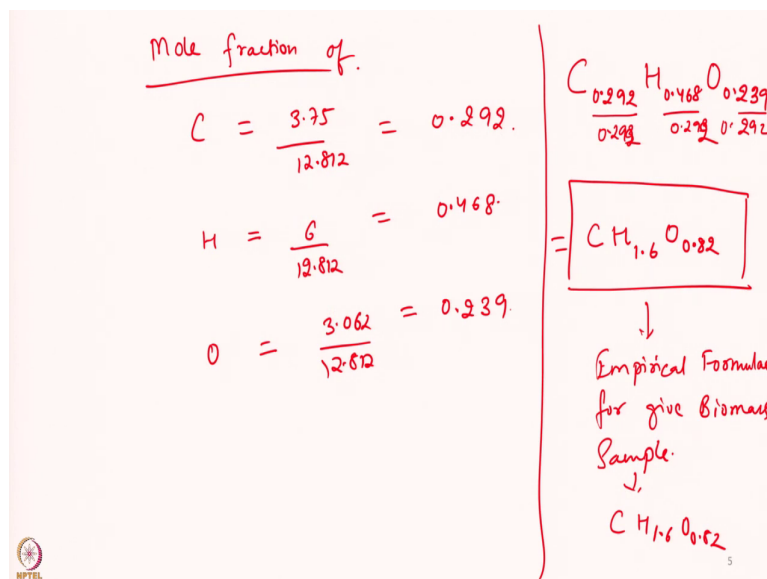 Mole fraction of.
C = 3.75 / 12.812 = 0.292.
H = 6 / 12.812 = 0.468.
O = 3.062 / 12.812 = 0.239.
C 0.292 / 0.292 H 0.468 / 0.292 O 0.239 / 0.292
= CH1.6 O0.82
↓
Empirical Formula
for give Biomass
Sample.
↓
CH1.6 O0.82
NPTEL
5